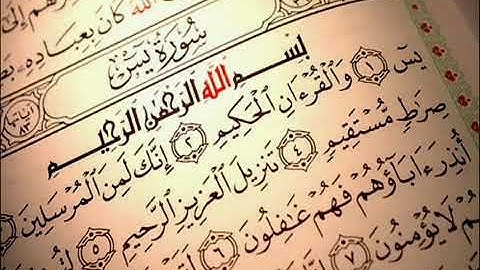 كَانَ بِعِبَادِهِۦ
سُورَةُ يسٓ
آياتها ٨٣
بِسْمِ ٱللَّهِ ٱلرَّحْمَٰنِ ٱلرَّحِيمِ
يسٓ ١ وَٱلْقُرْءَانِ ٱلْحَكِيمِ ٢ إِنَّكَ لَمِنَ ٱلْمُرْسَلِينَ
صِرَٰطٍ مُّسْتَقِيمٍ ٤ تَنزِيلَ ٱلْعَزِيزِ ٱلرَّحِيمِ ٥
أُنذِرَ ءَابَآؤُهُمْ فَهُمْ غَٰفِلُونَ ٦
لَا يُؤْمِنُونَ ٧